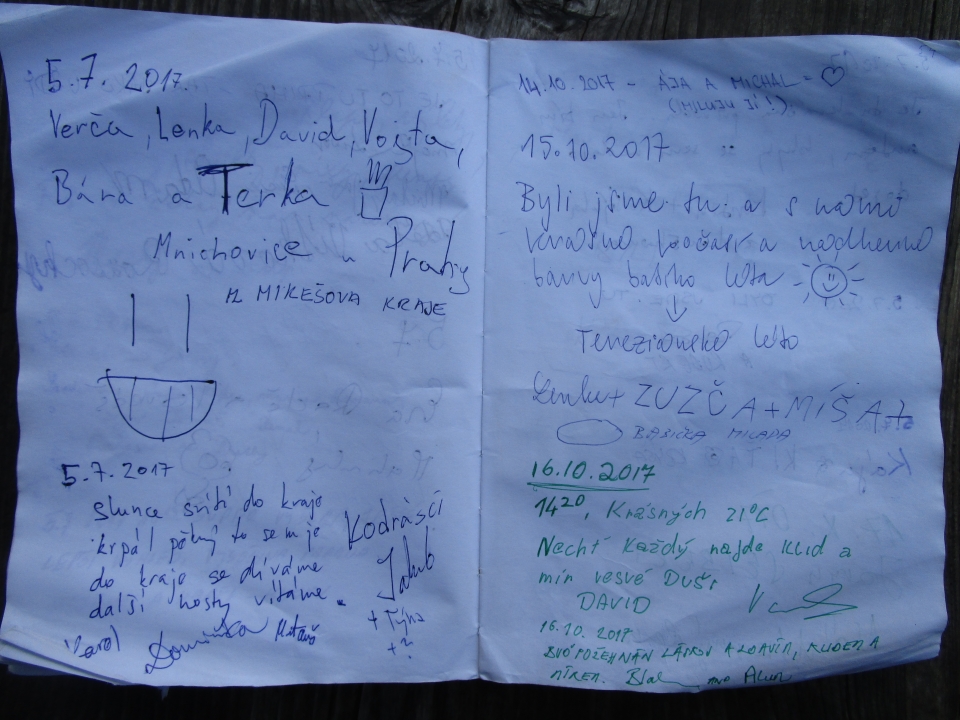 5.7. 2017.
Verča, Lenka, David, Vojta,
Bára a Terka
Mnichovice u Prahy
MIKEŠOVA KRAJE
5.7.2017
Slunce svítí do kraje
to sem je
do kraje se díváme
další hosty vítáme.
Kodrasci
Jakub
+ Týna
+ ?
Karol Dominika Matouš
14.10.2017 - ÁJA A MICHAL = ♡
(MILUJU JI!).
15.10.2017
Byli jsme tu a s námi
krásné počasí a nádherné
barvy babího léta
↓
Tereziánské léto
Lenka + ZUZČA + MÍŠA +
BABIČKA MILADA
16.10.2017
14²⁰, Krásných 21°C
Nechť každý najde klid a
mír ve své DUŠI
DAVID
16.10.2017
POŽEHNÁN LÁSKOU A ZDRAVÍM, KLIDEM A
MÍREM.